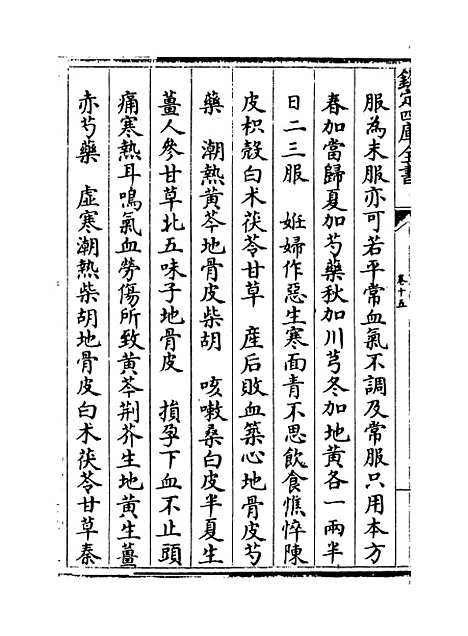 欽定四庫全書
卷十五
服為末服亦可若平常血氣不調及常服只用本方
春加當歸夏加芍藥秋加川芎冬加地黃各一兩半
日二三服　姙婦作惡生寒面青不思飲食憔悴陳
皮枳殼白术茯苓甘草　產后敗血築心地骨皮芍
藥　潮熱黃芩地骨皮柴胡　咳嗽桑白皮半夏生
薑人參甘草北五味子地骨皮　損孕下血不止頭
痛寒熱耳鳴氣血勞傷所致黃芩荆芥生地黃生薑
赤芍藥　虛寒潮熱柴胡地骨皮白术茯苓甘草秦